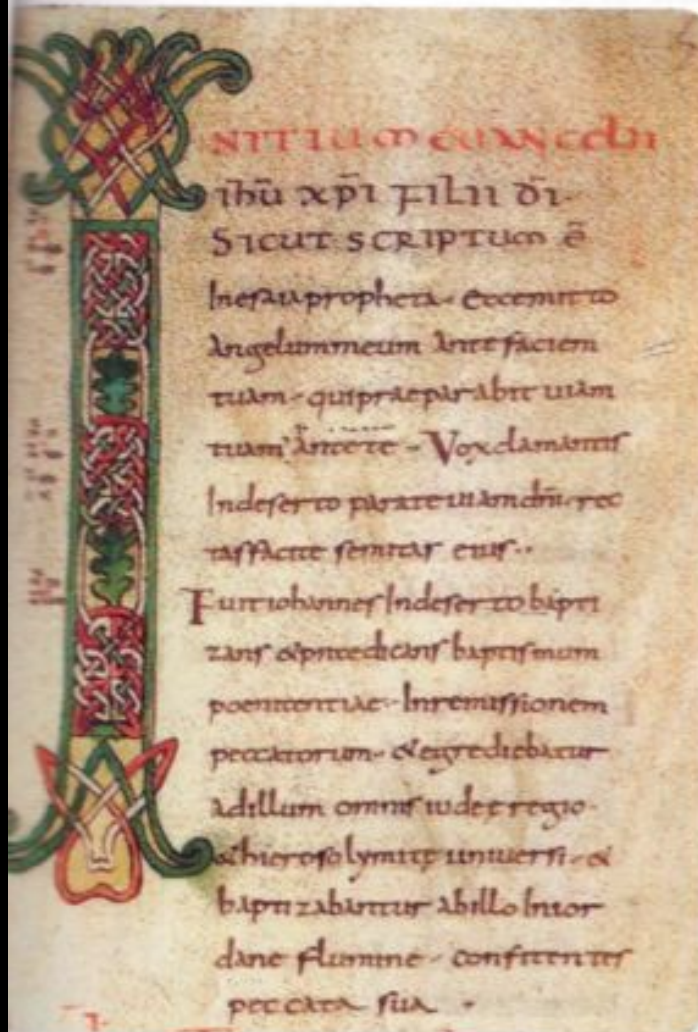 INITIUM EUANGELII
ihū xp̄i FILII dī·
SICUT SCRIPTUM ē
Inesaiapropheta· Eccemitto
Angelummeum Antefaciem
tuam· quipraeparabit uiam
tuam ante te· Voxclamantis
Indeserto parateuiamdn̄i· rec
tasfacite semitas eius··
Fuitiohannes Indeserto bapti
zans &praedicans baptismum
poenitentiae· Inremissionem
peccatorum· &egrediebatur
adillum omnis iudeęregio·
&hierosolymitę uniuersi· &
baptizabantur abillo Inior
dane flumine· confitentes
peccata sua ·